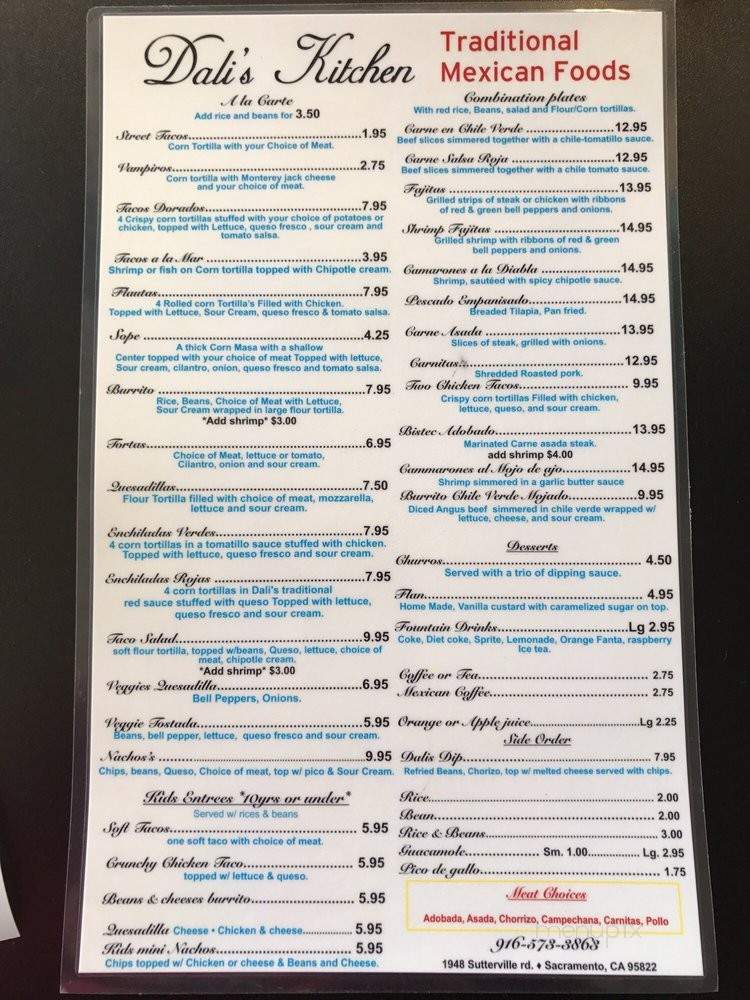 Dali's Kitchen
Traditional
Mexican Foods
A la Carte
Add rice and beans for 3.50
Street Tacos.......................................1.95
Corn Tortilla with your Choice of Meat.
Vampiros..........................................2.75
Corn tortilla with Monterey jack cheese
and your choice of meat.
Tacos Dorados...................................7.95
4 Crispy corn tortillas stuffed with your choice of potatoes or
chicken, topped with Lettuce, queso fresco , sour cream and
tomato salsa.
Tacos a la Mar ...................................3.95
Shrimp or fish on Corn tortilla topped with Chipotle cream.
Flautas.............................................7.95
4 Rolled corn Tortilla's Filled with Chicken.
Topped with Lettuce, Sour Cream, queso fresco & tomato salsa.
Sope ................................................4.25
A thick Corn Masa with a shallow
Center topped with your choice of meat Topped with lettuce,
Sour cream, cilantro, onion, queso fresco and tomato salsa.
Burrito .............................................7.95
Rice, Beans, Choice of Meat with Lettuce,
Sour Cream wrapped in large flour tortilla.
*Add shrimp* $3.00
Tortas...............................................6.95
Choice of Meat, lettuce or tomato,
Cilantro, onion and sour cream.
Quesadillas........................................7.50
Flour Tortilla filled with choice of meat, mozzarella,
lettuce and sour cream.
Enchiladas Verdes................................7.95
4 corn tortillas in a tomatillo sauce stuffed with chicken.
Topped with lettuce, queso fresco and sour cream.
Enchiladas Rojas ................................7.95
4 corn tortillas in Dali's traditional
red sauce stuffed with queso Topped with lettuce,
queso fresco and sour cream.
Taco Salad.........................................9.95
soft flour tortilla, topped w/beans, Queso, lettuce, choice of
meat, chipotle cream.
*Add shrimp* $3.00
Veggies Quesadilla................................6.95
Bell Peppers, Onions.
Veggie Tostada....................................5.95
Beans, bell pepper, lettuce, queso fresco and sour cream.
Nachos's ...........................................9.95
Chips, beans, Queso, Choice of meat, top w/ pico & Sour Cream.
Kids Entrees *10yrs or under*
Served w/ rices & beans
Soft Tacos......................................... 5.95
one soft taco with choice of meat.
Crunchy Chicken Taco......................... 5.95
topped w/ lettuce & queso.
Beans & cheeses burrito........................ 5.95
Quesadilla Cheese • Chicken & cheese................ 5.95
Kids mini Nachos............................... 5.95
Chips topped w/ Chicken or cheese & Beans and Cheese.
Combination plates
With red rice, Beans, salad and Flour/Corn tortillas.
Carne en Chile Verde ......................12.95
Beef slices simmered together with a chile-tomatillo sauce.
Carne Salsa Roja ..........................12.95
Beef slices simmered together with a chile tomato sauce.
Fajitas ..........................................13.95
Grilled strips of steak or chicken with ribbons
of red & green bell peppers and onions.
Shrimp Fajitas ...............................14.95
Grilled shrimp with ribbons of red & green
bell peppers and onions.
Camarones a la Diabla ....................14.95
Shrimp, sautéed with spicy chipotle sauce.
Pescado Empanisado.......................14.95
Breaded Tilapia, Pan fried.
Carne Asada ..................................13.95
Slices of steak, grilled with onions.
Carnitas........................................12.95
Shredded Roasted pork.
Two Chicken Tacos.......................... 9.95
Crispy corn tortillas Filled with chicken,
lettuce, queso, and sour cream.
Bistec Adobado................................13.95
Marinated Carne asada steak.
add shrimp $4.00
Cammarones al Mojo de ajo.................14.95
Shrimp simmered in a garlic butter sauce
Burrito Chile Verde Mojado.................9.95
Diced Angus beef simmered in chile verde wrapped w/
lettuce, cheese, and sour cream.
Desserts
Churros.......................................... 4.50
Served with a trio of dipping sauce.
Flan............................................... 4.95
Home Made, Vanilla custard with caramelized sugar on top.
Fountain Drinks..............................Lg 2.95
Coke, Diet coke, Sprite, Lemonade, Orange Fanta, raspberry
Ice tea.
Coffee or Tea........................................... 2.75
Mexican Coffee........................................ 2.75
Orange or Apple juice.............................Lg 2.25
Side Order
Dalis Dip................................................ 7.95
Refried Beans, Chorizo, top w/ melted cheese served with chips.
Rice....................................................... 2.00
Bean...................................................... 2.00
Rice & Beans.......................................... 3.00
Guacamole................... Sm. 1.00............. Lg. 2.95
Pico de gallo............................................ 1.75
Meat Choices
Adobada, Asada, Chorrizo, Campechana, Carnitas, Pollo
menupix
916-573-3863
1948 Sutterville rd. ♦ Sacramento, CA 95822